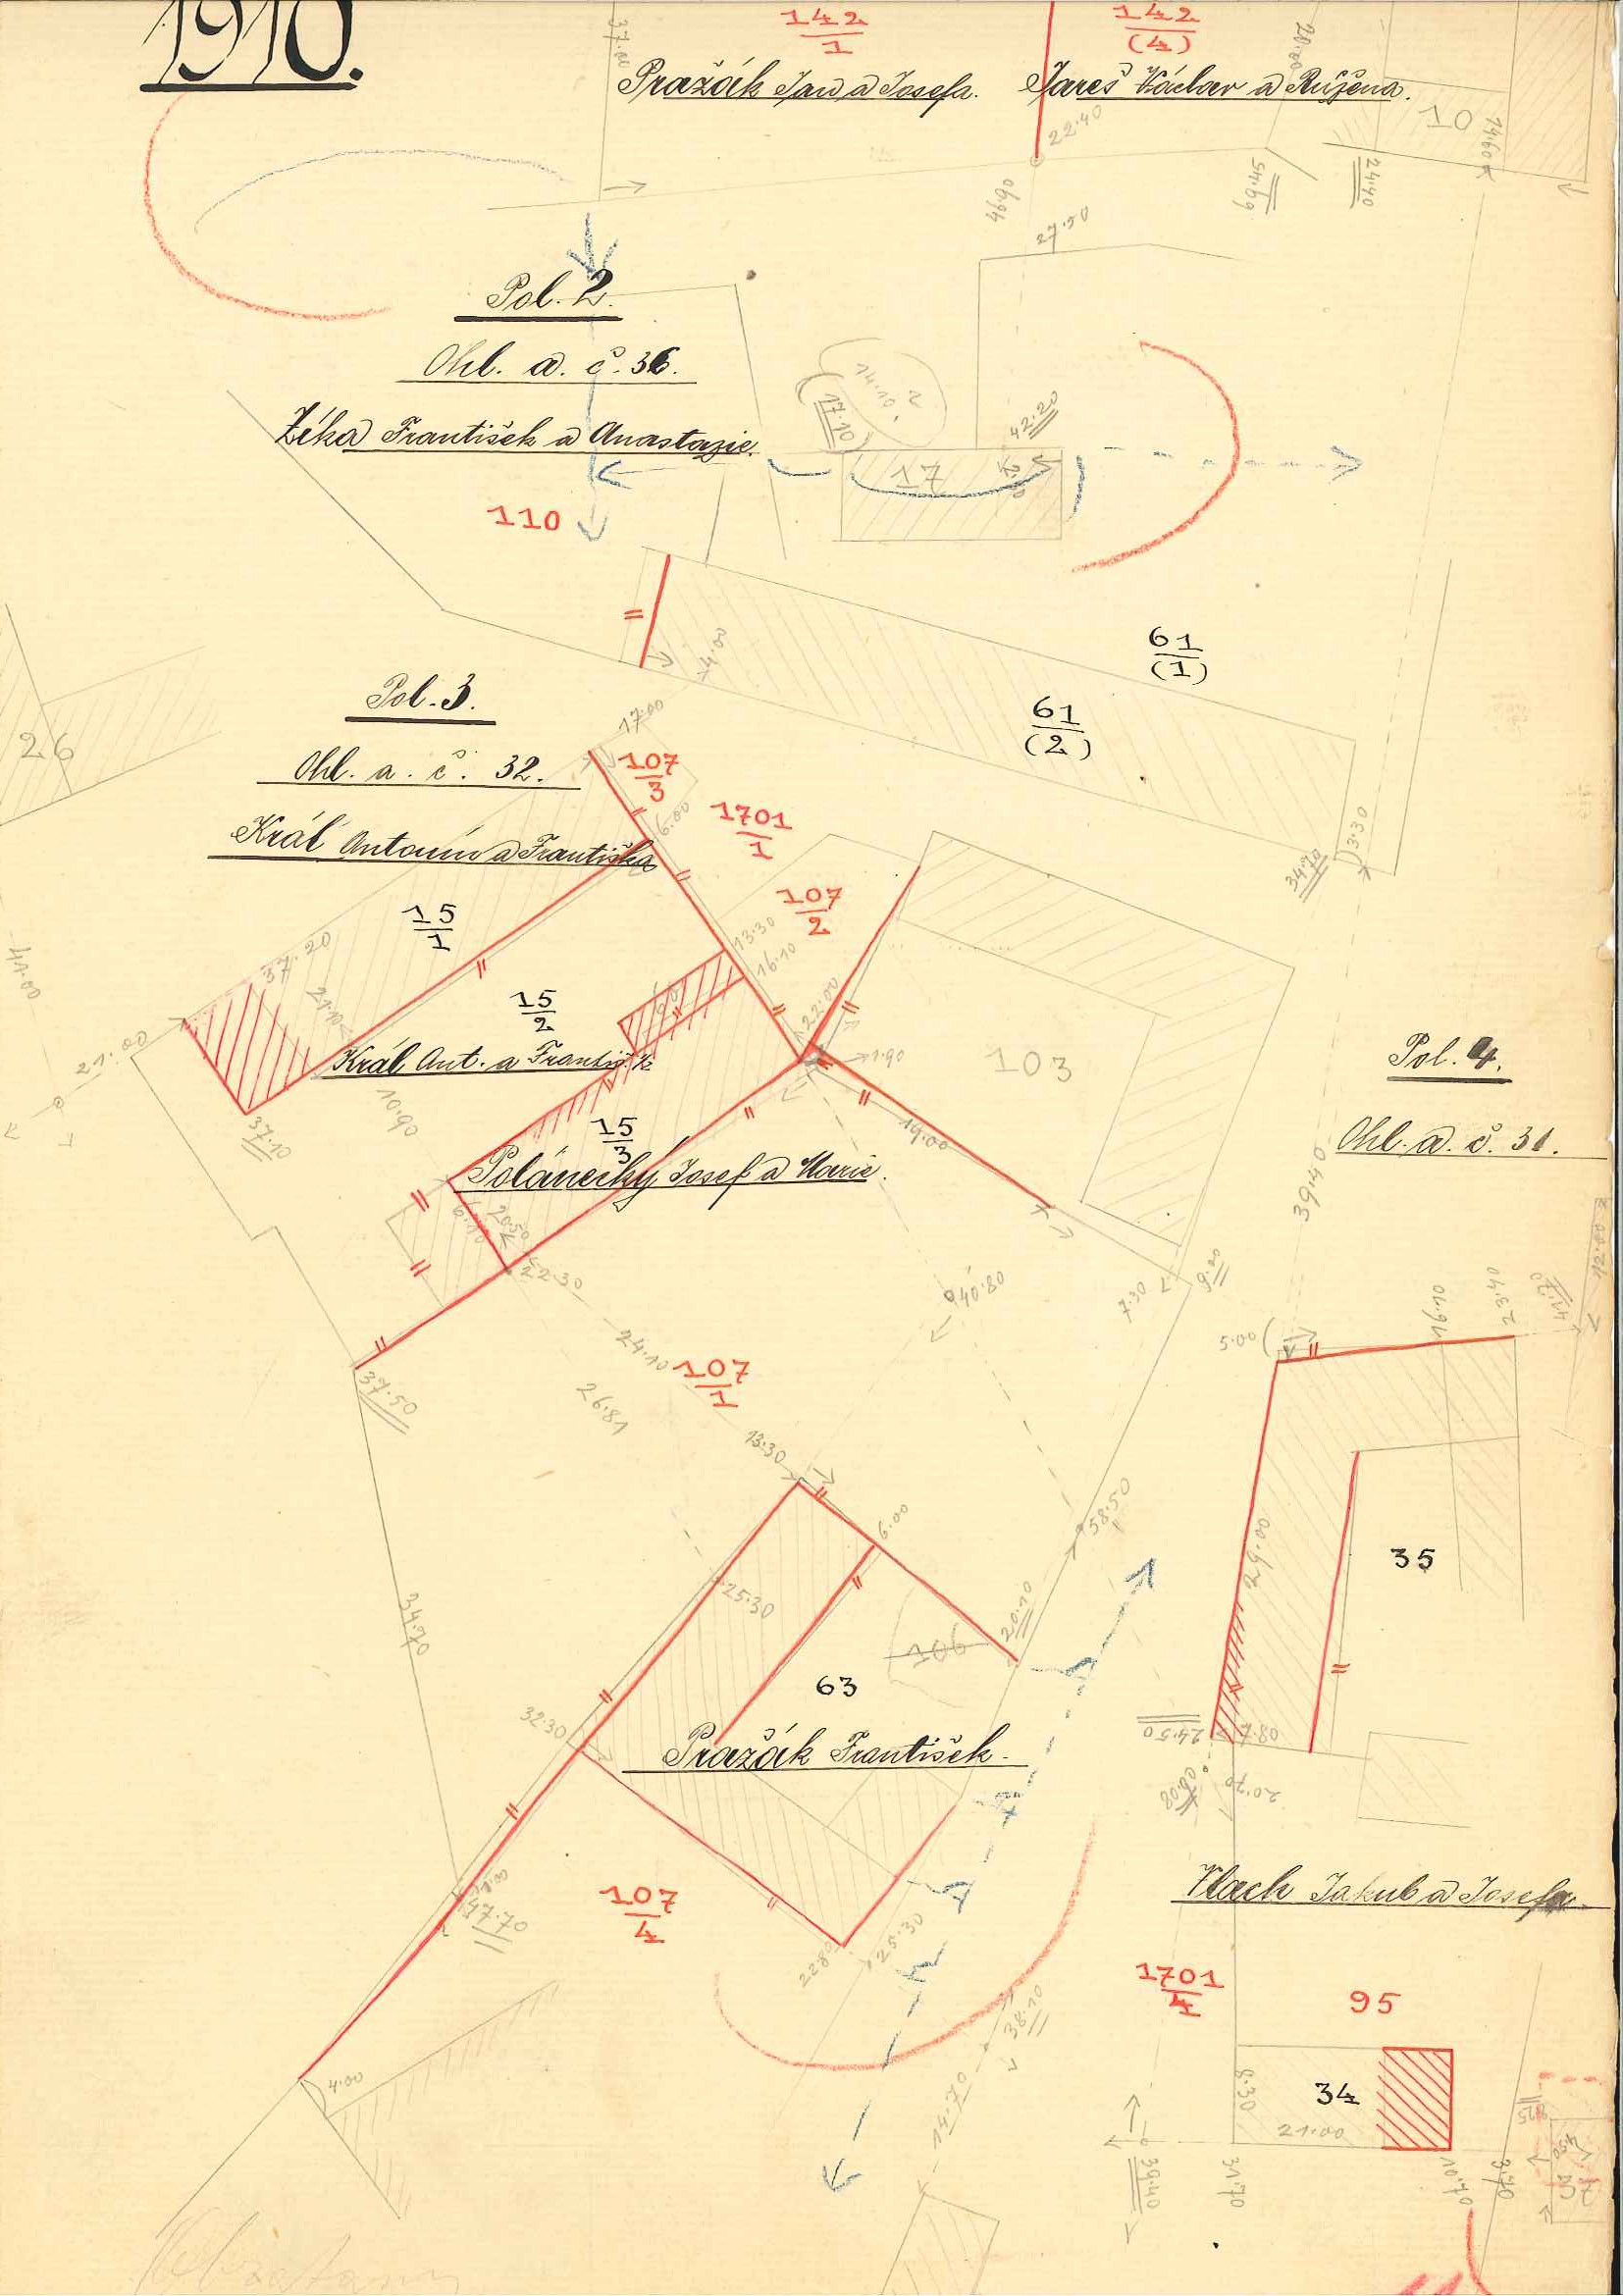 1910.
37·00
142
1
142
(4)
Pražák Jan a Josefa.
Jareš Václav a Růžena.
10
14·60
22·40
24·40
46·90
27·50
Pol. 2.
Ohl. a. č. 36.
František a Anastazie.
17·10
42·20
17
110
61
(1)
61
(2)
4·00
26
Pol. 3.
17·00
Ohl. a. č. 32.
107
3
6·00
1701
1
Král Antonín a Františka
3·30
34·70
107
2
15
1
13·30
16·10
37·20
21·10
15
2
22·00
41·00
21·00
Král Ant. a
1·90
103
Pol. 4.
10·90
37·10
19·00
15
3
Ohl. a. č. 31.
Polánecký Josef a Marie.
39·40
6·10
20·50
22·30
40·80
7·30
9·20
12·00
16·40
23·40
5·00
24·10
107
1
37·50
26·81
13·30
58·50
6·00
29·00
35
25·30
34·70
20·10
106
63
32·30
24·50
Pražák František.
20·70
47·70
107
4
25·30
22·80
Jakub a Josefa.
1701
4
95
38·10
4·00
14·70
34
8·30
21·00
39·40
31·70
10·70
3·70